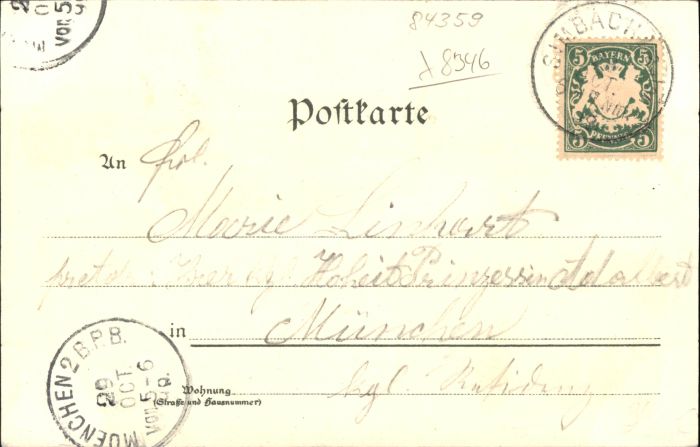 84359
8346
SIMBACH
5 BAYERN 5
5 5
Postkarte
An Frl.
Marie Linhart
Ihrer kgl. Hoheit Prinzessin Adalbert
in München
Wohnung
(Straße und Hausnummer)
kgl. Residenz
MUENCHEN 2 B.P.B.
29
OCT
Vor. 5-6